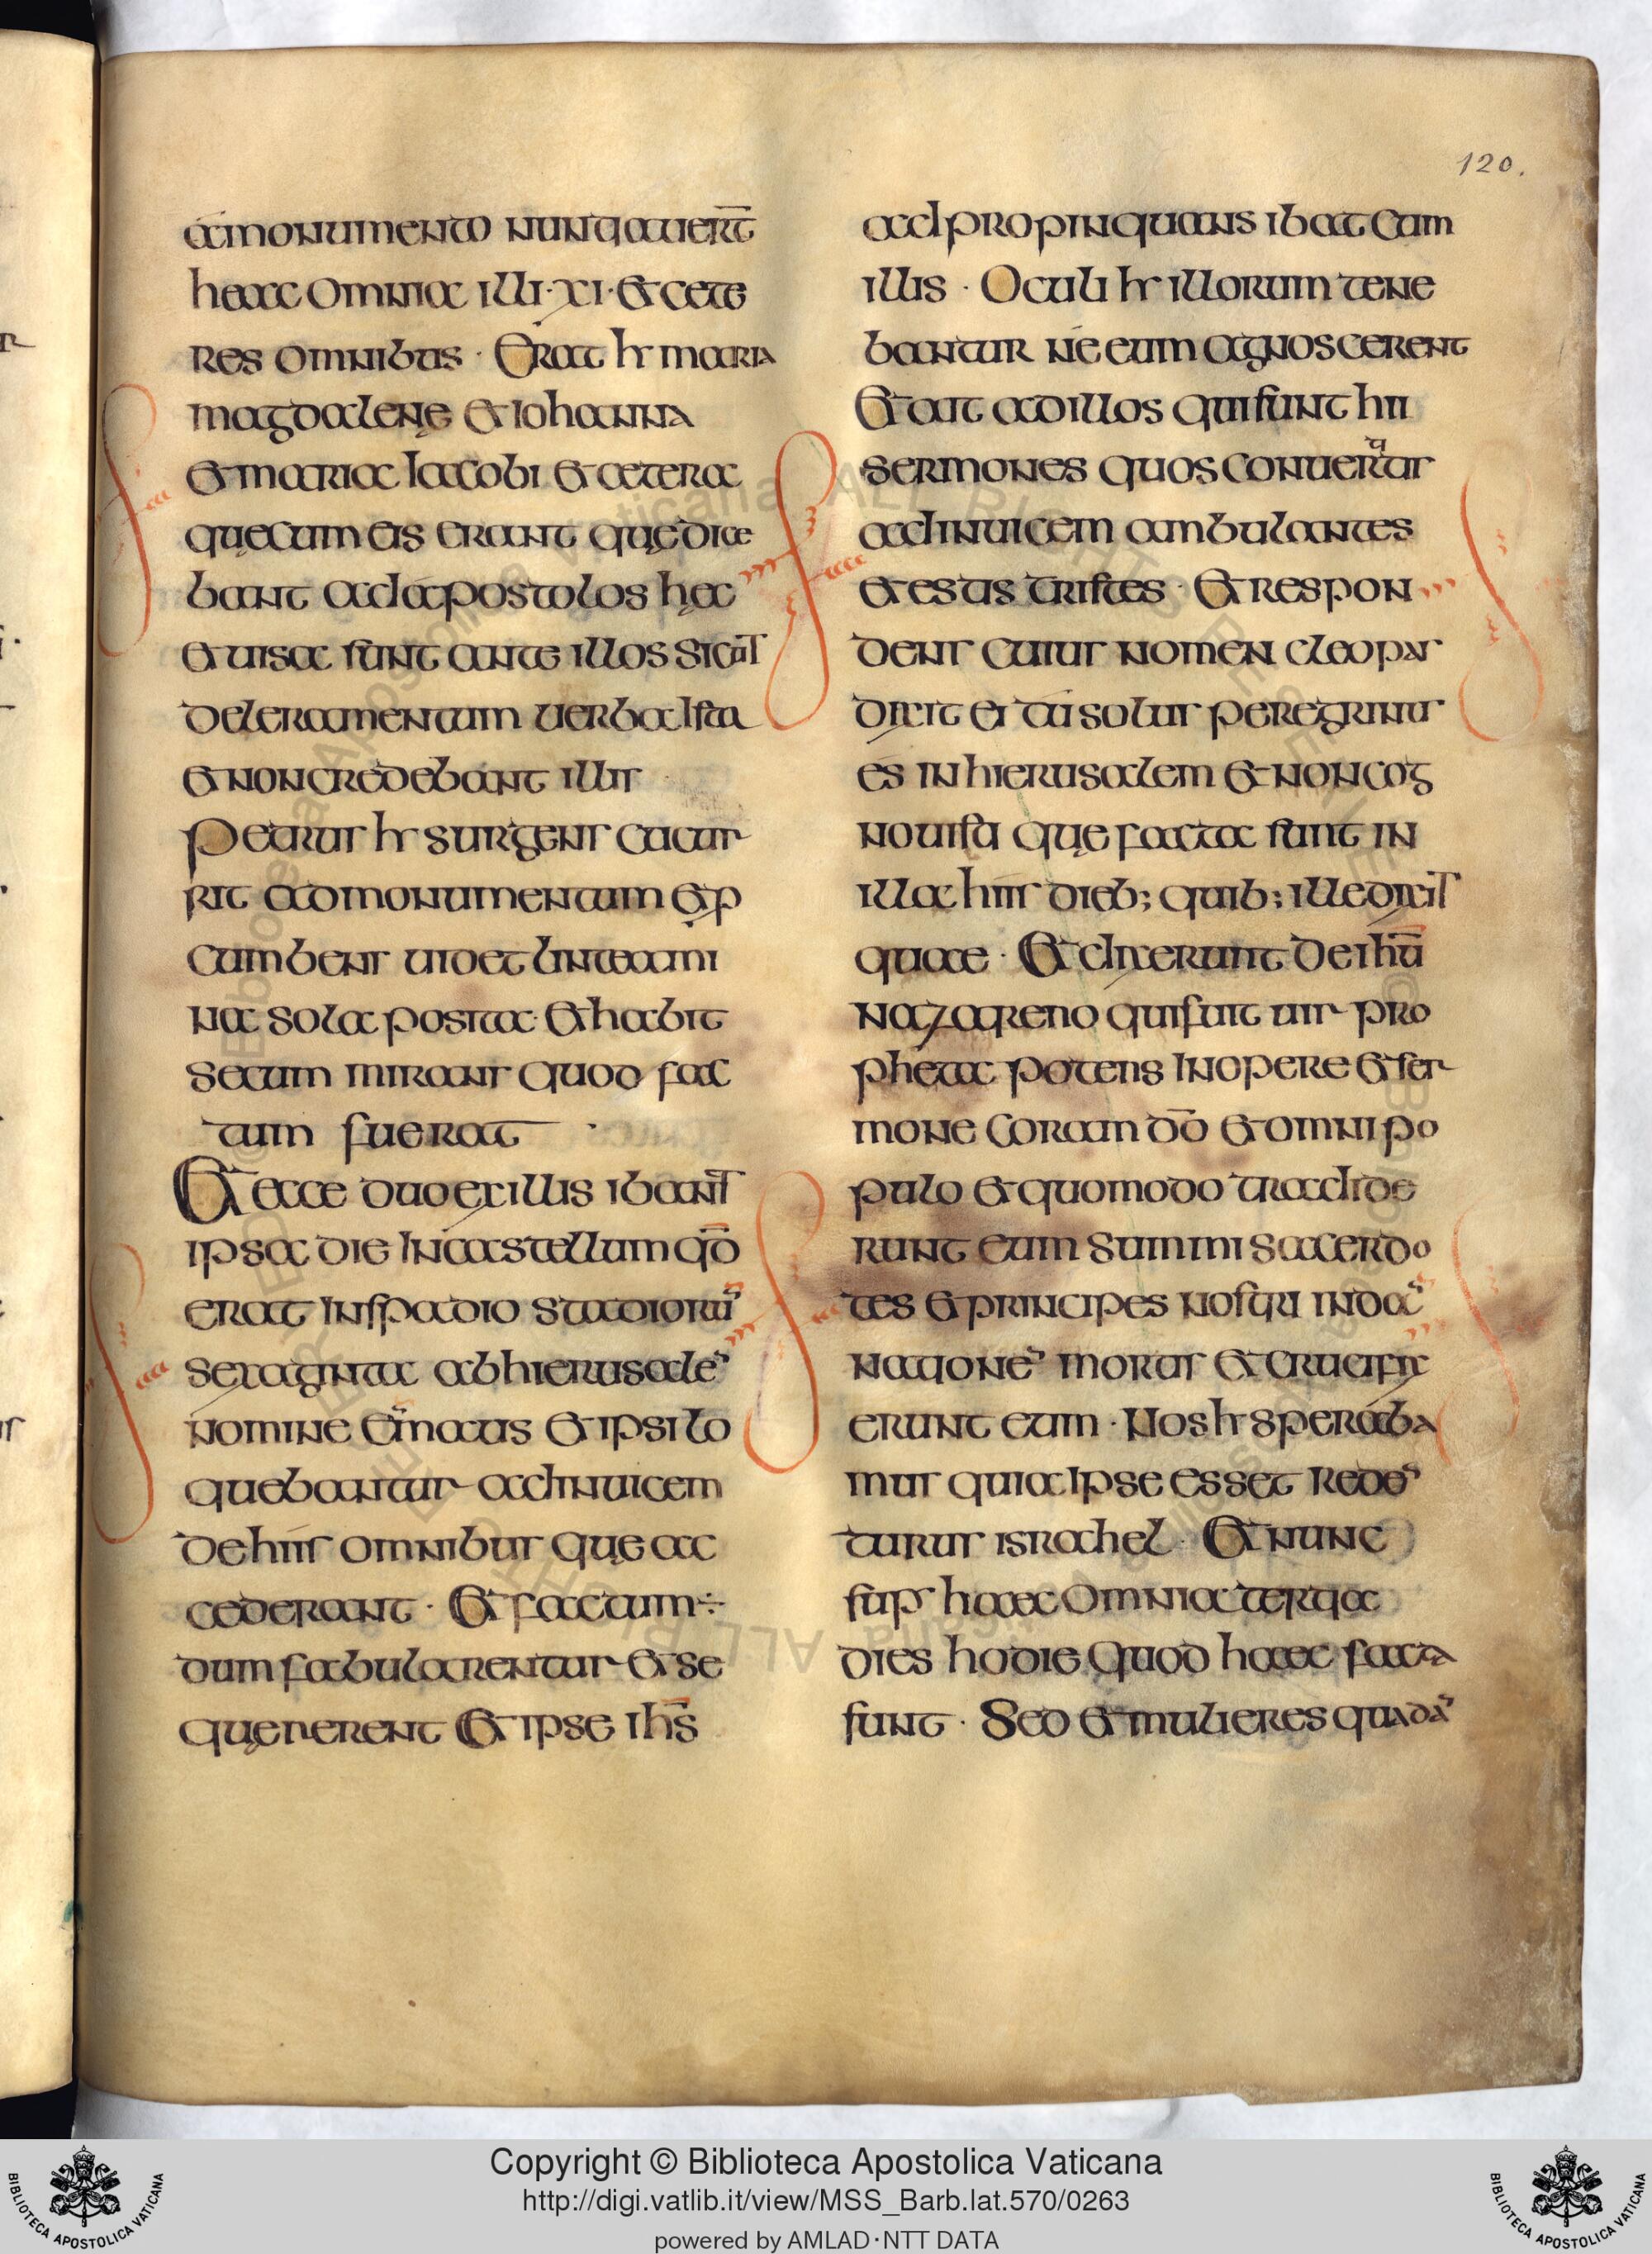 120.
a monumento nuntiauer̅t̅
haec omnia illi · XI · et cete
res omnibus · Erat hr maria
magdalene et Iohanna
et maria Iacobi et cetera
quę cum eis erant quę dice
bant ad apostolos hęc
et uisa sunt ante illos sicut
deleramentum uerba Ista
et non credebant illis
Petrus hr surgens cucur
rit ad monumentum et p
cumbens uidet linteami
na sola posita · et habit
secum mirans quod fac
tum fuerat ·
Et ecce duo ex illis ibant
ipsa die In castellum qd̅
erat In spadio stadioru̅
sexaginta ab hierusale̅
nomine Em̅aus et ipsi lo
quebantur ad Inuicem
de hiis omnibus quę ac
cederant · Et factum ÷
dum fabularentur et se
quęrerent Et ipse ihs̅
adpropinquans ibat cum
illis · Oculi hr illorum tene
bantur ne eum agnoscerent
Et ait ad illos qui sunt hii
sermones quos conuertiˢ
ad Inuicem ambulantes
et estis tristes · Et respon
dens cuius nomen cleopas
dixit ei tu solus peregrinus
es In hierusalem et non cog
nouisti quę facta sunt In
illa hiis dieb; quib; ille dixit
quae · Et dixerunt de ihu̅
nazareno qui fuit uir pro
pheta potens In opere et ser
mone coram do̅ et omni po
pulo et quomodo tradide
runt eum summi sacerdo
tes et principes nostri In da̅
natione̅ mortis et crucifix
erunt eum · Nos hr speraba
mus quia Ipse esset Rede̅
turus israhel · Et nunc
sup haec omnia tertia
dies hodie quod haec facta
sunt · Sed et mulieres quada̅
Copyright © Biblioteca Apostolica Vaticana
http://digi.vatlib.it/view/MSS_Barb.lat.570/0263
powered by AMLAD·NTT DATA
BIBLIOTECA APOSTOLICA VATICANA
BIBLIOTECA APOSTOLICA VATICANA